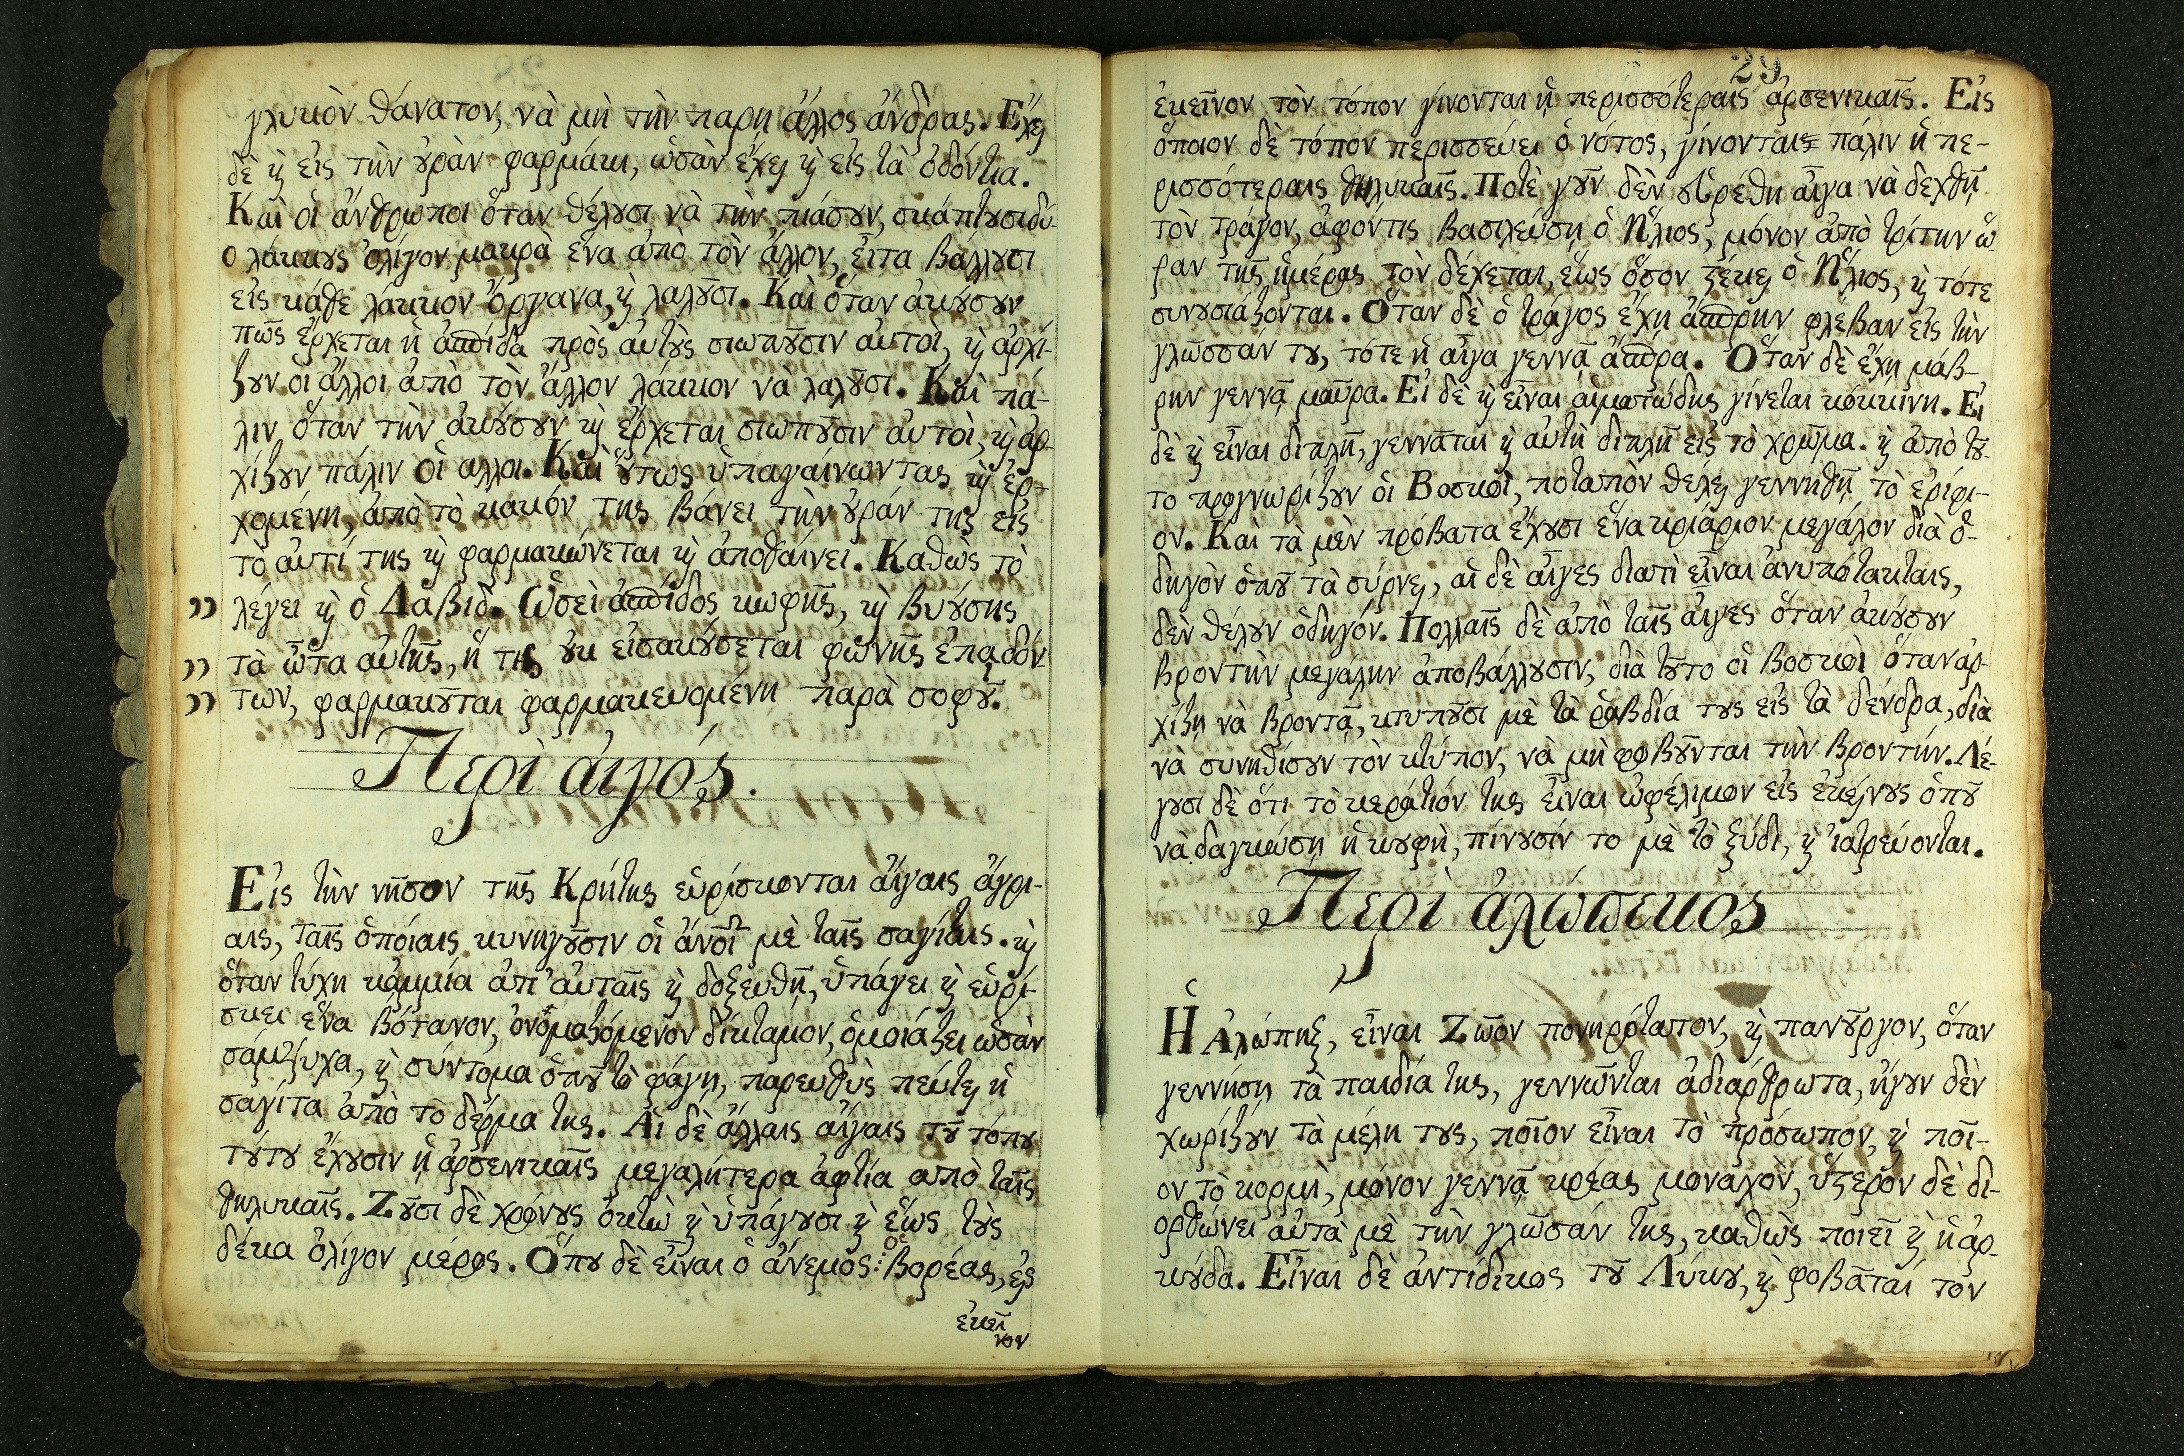 γλυκὸν θάνατον, νὰ μὴ τὴν παρῃ ἄλλος ἄνδρας. Ἔχει
δὲ ϗ εἰς τὴν ȣ̓ρὰν φαρμάκι, ὡσὰν ἔχει ϗ εἰς τὰ ὀδόντια.
Καὶ οἱ ἄνθρωποι ὅταν θέλȣσι νὰ τὴν πιάσȣν, σκάπτȣσι δύ-
ο λάκκȣς ὀλίγον μακρὰ ἕνα ἀπὸ τὸν ἄλλον, εἶτα βάλλȣσι
εἰς κάθε λάκκον ὄργανα, ϗ λαλȣ͂σι. Καὶ ὅταν ἀκȣ́σȣν
πῶς ἔρχεται ἡ ἀσπίδα πρὸς αὐτȣ̀ς σιωπȣ͂σιν αὐτοὶ, ϗ ἀρχί-
ζȣν οἱ ἄλλοι ἀπὸ τὸν ἄλλον λάκκον νὰ λαλȣ͂σι. Καὶ πά-
λιν ὅταν τὴν ἀκȣ́σȣν ϗ ἔρχεται σιωπȣ͂σιν αὐτοὶ, ϗ ἀρ-
χίζȣν πάλιν οἱ αλλοι. Καὶ ȣ̔́τως ὑπαγαίνωντας ϗ ἐρ-
χομένη, ἀπὸ τὸ κακόν της βάνει τὴν ȣ̓ράν της εἰς
τὸ αὐτί της ϗ φαρμακώνεται ϗ ἀποθαίνει. Καθὼς τὸ
” λέγει ϗ ὁ Δαβὶδ. Ὡσεὶ ἀσπίδος κωφῆς, ϗ βυȣ́σης
” τὰ ὦτα αὐτῆς, ἥ τις ȣκ εἰσακȣ́σεται φωνῆς ἐπᾳδόν-
” των, φαρμακȣ͂ται φαρμακευομένη παρὰ σοφȣ͂.
Περὶ αἰγός.
Εἰς τὴν νῆσον τῆς Κρήτης εὑρίσκονται αἴγαις ἄγρι-
αις, ταῖς ὁποίαις κυνηγȣ͂σιν οἱ ἄνοι μὲ ταῖς σαγίταις. ϗ
ὅταν τύχη καμμία ἀπ' αὐταῖς ϗ δοξευθῇ, ὑπάγει ϗ εὑρί-
σκει ἕνα βότανον, ὀνομαζόμενον δίκταμον, ὁμοιάζει ὡσὰν
σάμψυχα, ϗ σύντομα ὁπȣ͂ τὸ φάγῃ, παρευθὺς πέύτει ἡ
σαγίτα ἀπὸ τὸ δέρμα της. Αἱ δὲ ἄλλαις αἴγαις τȣ͂ τόπȣ
τȣ́τȣ ἔχȣσιν ἡ ἀρσενικαῖς μεγαλήτερα ἀφτία απὸ ταῖς
θηλυκαῖς. Ζȣ͂σι δὲ χρόνȣς ὀκτὼ ϗ ὑπάγȣσι ϗ ἕως τȣ̀ς
δέκα ὀλίγον μέρος. Ὅπȣ δὲ εἶναι ὁ ἄνεμος: ὁ βορέας, εἰς
ἐκεῖ
νον
29
ἐκεῖνον τὸν τόπον γίνονται ἡ περισσότεραις ἀρσενικαῖς. Εἰς
ὅποιον δὲ τόπον περισσεύει ὁ νότος, γίνονται πάλιν ἡ πε-
ρισσότεραις θηλυκαῖς. Ποτὲ γȣ͂ν δὲν εὑρέθη αἶγα νὰ δεχθῇ
τὸν τράγον, ἀφόντις βασιλεύσῃ ὁ Ἥλιος, μόνον ἀπὸ τρίτην ὥ
ραν τῆς ἡμέρας τὸν δέχεται, ἕως ὅσον ξέκει ὁ Ἥλιος, ϗ τότε
συνȣσιάζονται. Ὅταν δὲ ὁ τράγος ἔχῃ ἄσπρην φλέβαν εἰς τὴν
γλῶσσάν τȣ, τότε ἡ αἶγα γεννᾷ ἄσπρα. Ὅταν δὲ ἔχῃ μάβ-
ρην γεννᾷ μαῦρα. Εἰ δὲ ϗ εἶναι αἱματώδης γίνεται κόκκινη. Εἰ
δὲ ϗ εἶναι διπλῆ, γεννᾶται ϗ αὐτὴ διπλῆ εἰς τὸ χρῶμα. ϗ ἀπὸ τȣ͂-
το προγνωρίζȣν οἱ Βοσκοὶ, ποταπὸν θέλει γεννηθῇ τὸ ἐρίφι-
ον. Καὶ τὰ μὲν πρόβατα ἔχȣσι ἕνα κριάριον μεγάλον διὰ ὁ-
δηγὸν ὁπȣ͂ τὰ σύρνει, αἱ δὲ αἶγες διατὶ εἶναι ἀνυπότακταις,
δὲν θέλȣν ὁδηγόν. Πολλαῖς δὲ ἀπὸ ταῖς αἶγες ὅταν ἀκȣ́σȣν
βροντὴν μεγάλην ἀποβάλλȣσιν, διὰ τȣ͂το οἱ βοσκοὶ ὅταν ἀρ-
χίζῃ νὰ βροντᾷ, κτυπȣ͂σι μὲ τὰ ῥαβδία τȣς εἰς τὰ δένδρα, διὰ
νὰ συνηθίσȣν τὸν κτύπον, νὰ μὴ φοβȣ͂νται τὴν βροντήν. Λέ-
γȣσι δὲ ὅτι τὸ κεράτιόν της εἶναι ὠφέλιμον εἰς ἐκείνȣς ὁπȣ͂
νὰ δαγκώσῃ ἡ κȣφὴ, πίνȣσίν το μὲ τὸ ξύδι, ϗ ἰατρεύονται.
Περὶ ἀλώπεκος
Ἡ Ἀλώπηξ, εἶναι Ζῶον πονηρότατον, ϗ πανȣ͂ργον, ὅταν
γεννήσῃ τὰ παιδία της, γεννῶνται ἀδιάρθρωτα, ἤγȣν δὲν
χωρίζȣν τὰ μέλη τȣς, ποῖον εἶναι τὸ πρόσωπον, ϗ ποῖ-
ον τὸ κορμὶ, μόνον γεννᾷ κρέας μοναχὸν, ὕστερον δὲ δι-
ορθώνει αὐτὰ μὲ τὴν γλῶσάν της, καθὼς ποιεῖ ϗ ἡ ἀρ-
κȣ́δα. Εἶναι δὲ ἀντίδικος τȣ͂ Λύκȣ, ϗ φοβᾶταί τον